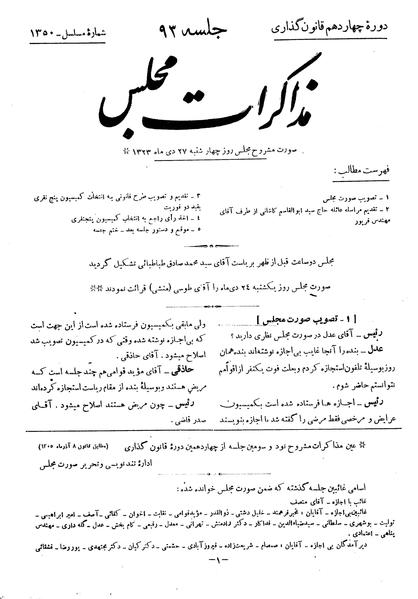 دورهٔ چهاردهم قانون گذاری
جلسه ۹۳
شمارهٔ مسلسل - ۱۳۵۰
مذاکرات مجلس
صورت مشروح مجلس روز چهارشنبه ۲۷ دی ماه ۱۳۲۳ *
فهرست مطالب :
۱ - تصویب صورت مجلس
۲ - تقدیم مراسله عائله حاج سید ابوالقاسم کاشانی از طرف آقای
مهندس فریور
۳ - تقدیم و تصویب طرح قانونی به انتخاب کمیسیون پنج نفری
بقید دو فوریت
۴ - اخذ رأی راجع به انتخاب کمیسیون پنجنفری
۵ - موقع و دستور جلسه بعد - ختم جلسه
مجلس دو ساعت قبل از ظهر بریاست آقای سید محمد صادق طباطبائی تشکیل گردید
صورت مجلس روز یکشنبه ۲۴ دی‌ماه را آقای طوسی (منشی) قرائت نمودند **
[ ۱ - تصویب صورت مجلس ]
رئیس - آقای عدل در صورت مجلس نظری دارید؟
عدل - بنده را آنجا غایب بی اجازه نوشته‌اند بنده همان
روز بوسیلهٔ تلفون استجازه کردم و بعلت فوت یکنفر از اقوامم
نتوانستم حاضر شوم.
رئیس - اجازه ها فرستاده شده است بکمیسیون
عرایض و مرخصی فقط مرضی را گفته شد با اجازه بنویسند
ولی مابقی بکمیسیون فرستاده شده است از این جهت است
که بی‌اجازه نوشته شده وقتی که در کمیسیون تصویب شد
اصلاح میشود. آقای حاذقی.
حاذقی - آقای مؤید قوامی هم چند جلسه است کسه
مریض هستند و بوسیلهٔ بنده از مقام ریاست استجازه کرده‌اند
رئیس - چون مریض هستند اصلاح میشود. آقای
صدر قاضی.
* عین مذاکرات مشروح نود و سومین جلسه از چهاردهمین دورهٔ قانون گذاری (مطابق قانون ۸ آذرماه ۱۳۰۵)
ادارهٔ تند نویسی و تحریر صورت مجلس
اسامی غائبین جلسه گذشته که ضمن صورت مجلس خوانده شده:
غائب با اجازه - آقای منصف
غائبین بی‌اجازه - آقایان : فرهمند - خلیل دشتی - ذوالقدر - مؤید قوامی - نقابت - اخوان - کفائی - آصف - امیر ابراهیمی -
تولیت - بوشهری - سلطانی - سید ضیاءالدین - فداکار - دکتر - تهرانی - معدل - رفیعی - کام بخش - عدل - گله داری - مهندس
پناهی - اعتمادی .
دیرآمدگان بی اجازه - آقایان : صمصام - شریعت‌زاده - فیروزآبادی - حشمتی - دکتر کیان - دکتر مجتهدی - پوررضا - قشقائی
- ۱ -